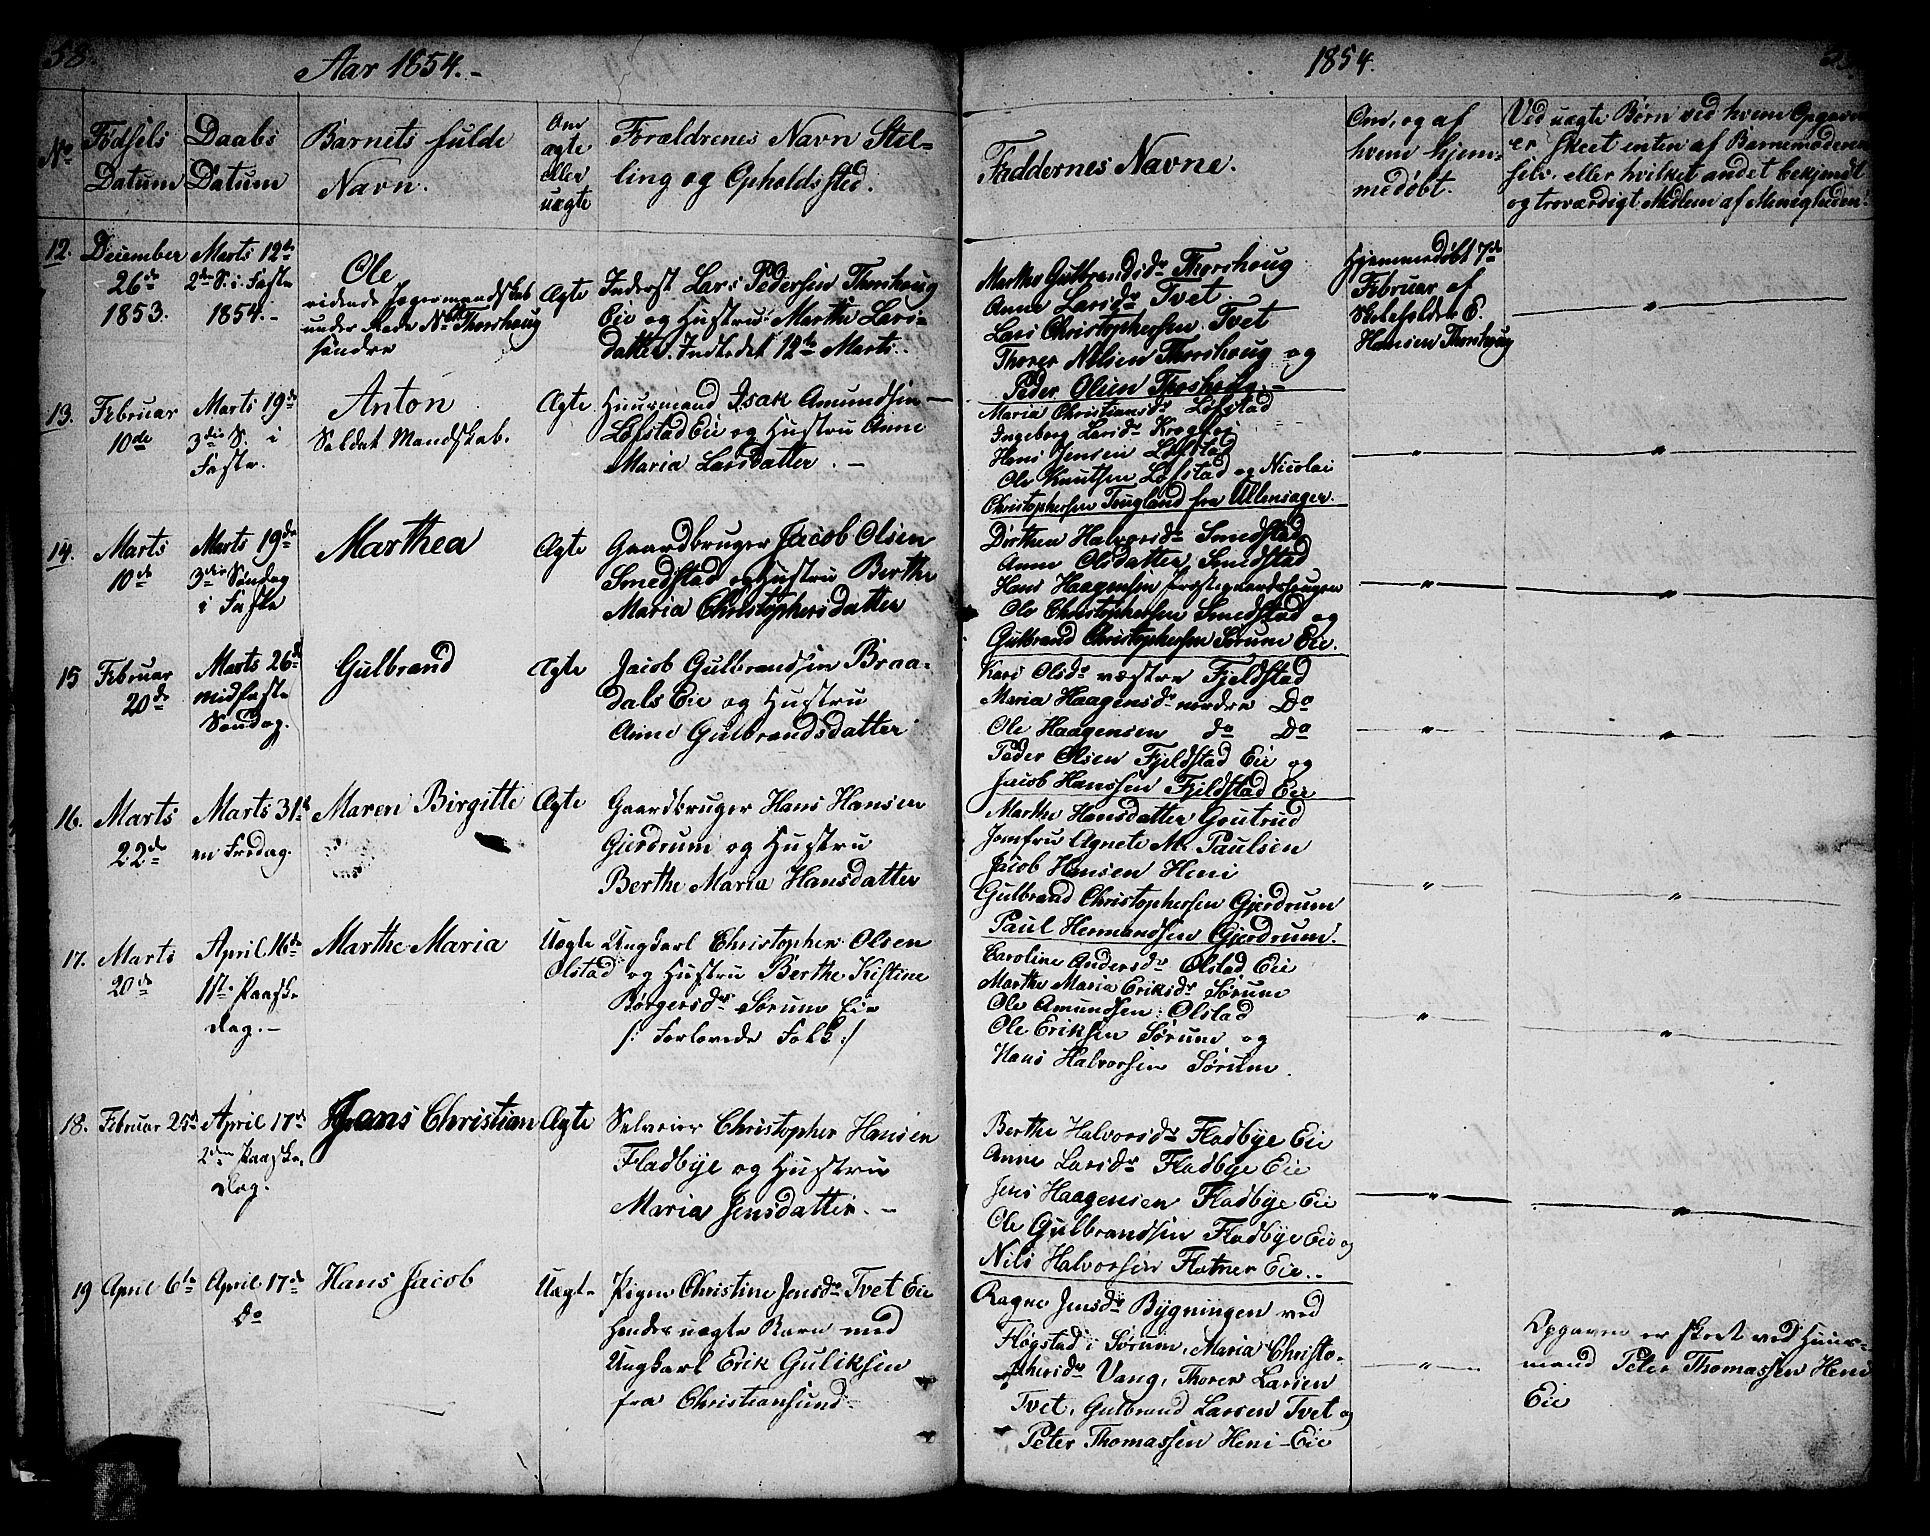 58.
Aar 1854.-
No
Fødsels
Datum
Daabs
Datum
Barnets fulde
Navn.
Om
ægte
eller
uægte
Forældrenes Navn Stil-
ling og Opholdssted.
12.
December
26de
1853.
Marts 12te
2den S. i Faste
1854.-
Ole
Ægte
Inderst Lars Pedersen Thorshoug
Eie og Hustru Marthe Lars-
datter. Indledet 12te Marts.
13.
Februar
10de
Marts 19de
3die S. i
Faste.
Anton
Soldat Mandskab.
Ægte
Huusmand Isak Amundsen
Løfstad Eie og Hustru Anne
Maria Larsdatter. -
14.
Marts
10de
Marts 19de
3die Søndag
i Faste
Marthea
Ægte
Gaardbruger Jacob Olsen
Smedstad og Hustru Berthe
Maria Christophersdatter
15
Februar
20de
Marts 26de
Midfaste
Søndag.
Gulbrand
Ægte
Jacob Gulbrandsen Braa-
dals Eie og Hustru
Anne Gulbrandsdatter
16.
Marts
22de
Marts 31te
en Fredag.
Maren Birgitte
Ægte
Gaardbruger Hans Hansen
Gjerdrum og Hustru
Berthe Maria Hansdatter
17.
Marts
20de
April 16de
1ste Paaske
dag.-
Marthe Maria
Uægte
Ungkarl Christopher Olsen
Olstad og Hustru Berthe Kistine
Børgersdr Sørum Eie
/: Forlovede Folk :/
18.
Februar 25de
April 17de
2den Paaske
dag.
Hans Christian
Ægte
Selveier Christopher Hansen
Fladbye og Hustru
Maria Jensdatter. -
19
April 6te
April 17de
Do
Hans Jacob
Uægte
Pigen Christine Jensdr Tvet Eie
Hendes uægte Barn med
Ungkarl Erik Guliksen
fra Christiansund
1854.
Faddernes Navne.
Om, og af
hvem hjem-
medøbt.
Ved uægte Børn ved hvem Opgaven
er skeet enten af Barnemoderen
selv, eller hvilket andet bekjendt
og troværdigt Medlem af Menigheden.
Marthe Gulbrandsdr Thorshoug
Anne Larsdr Tvet
Lars Christophersen Tvet
Thorer Nilsen Thorshoug og
Peder Olsen Thorshoug. -
Hjemmedøbt 7de
Februar af
Skoleholder E.
Hansen Thorshoug
Maria Christiansdr Løfstad
Ingeborg Larsdr Kroghoj
Hans Jensen Løfstad
Ole Knutsen Løfstad og Nicolai
Christophersen Teugland fra Ullensager.
Dorthea Halvorsdr Smedstad
Anne Olsdatter Smedstad
Hans Haagensen
Ole Christophersen Smedstad og
Gulbrand Christophersen Sørum Eie.
Kari Olsdr vestre Fjeldstad
Maria Haagensdr nordre Do
Ole Haagensen do Do
Peder Olsen Fjeldstad Eie og
Jacob Hanssen Fjeldstad Eie
Marthe Hansdatter Goutrud
Jomfru Agnete M. Paulsen
Jacob Hansen Heni
Gulbrand Christophersen Gjerdrum
Paul Hermandsen Gjerdrum.
Caroline Andersdr Olstad Eie
Marthe Maria Eriksdr Sørum
Ole Amundsen Olstad
Ole Eriksen Sørum og
Hans Halvorsen Sørum.
Berthe Halvorsdr Fladbye Eie
Anne Larsdr Fladbye Eie
Jens Haagensen Fladbye Eie
Ole Gulbrandsen Fladbye Eie og
Nils Halvorsen Flatner Eie.-
Ragne Jensdr Bygningen ved
Fløgstad i Sørum, Maria Christo-
phersdr Vang, Thorer Larsen
Tvet, Gulbrand Larsen Tvet og
Peter Thomassen Heni-Eie
Opgaven er skeet ved Huus-
mand Peter Thomassen Heni
Eie